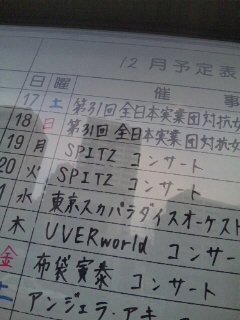 12月予定表
日 曜 催 事
17 土 第31回 全日本実業団対抗女
18 日 第31回 全日本実業団対抗女
19 月 SPITZ コンサート
20 火 SPITZ コンサート
1 水 東京スカパラダイスオーケスト
木 UVERworld コンサ
金 布袋寅泰 コンサート
土 アンジェラ・アキ